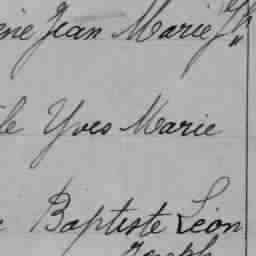 Jean Marie
Yves Marie
Baptiste Léon
Joseph